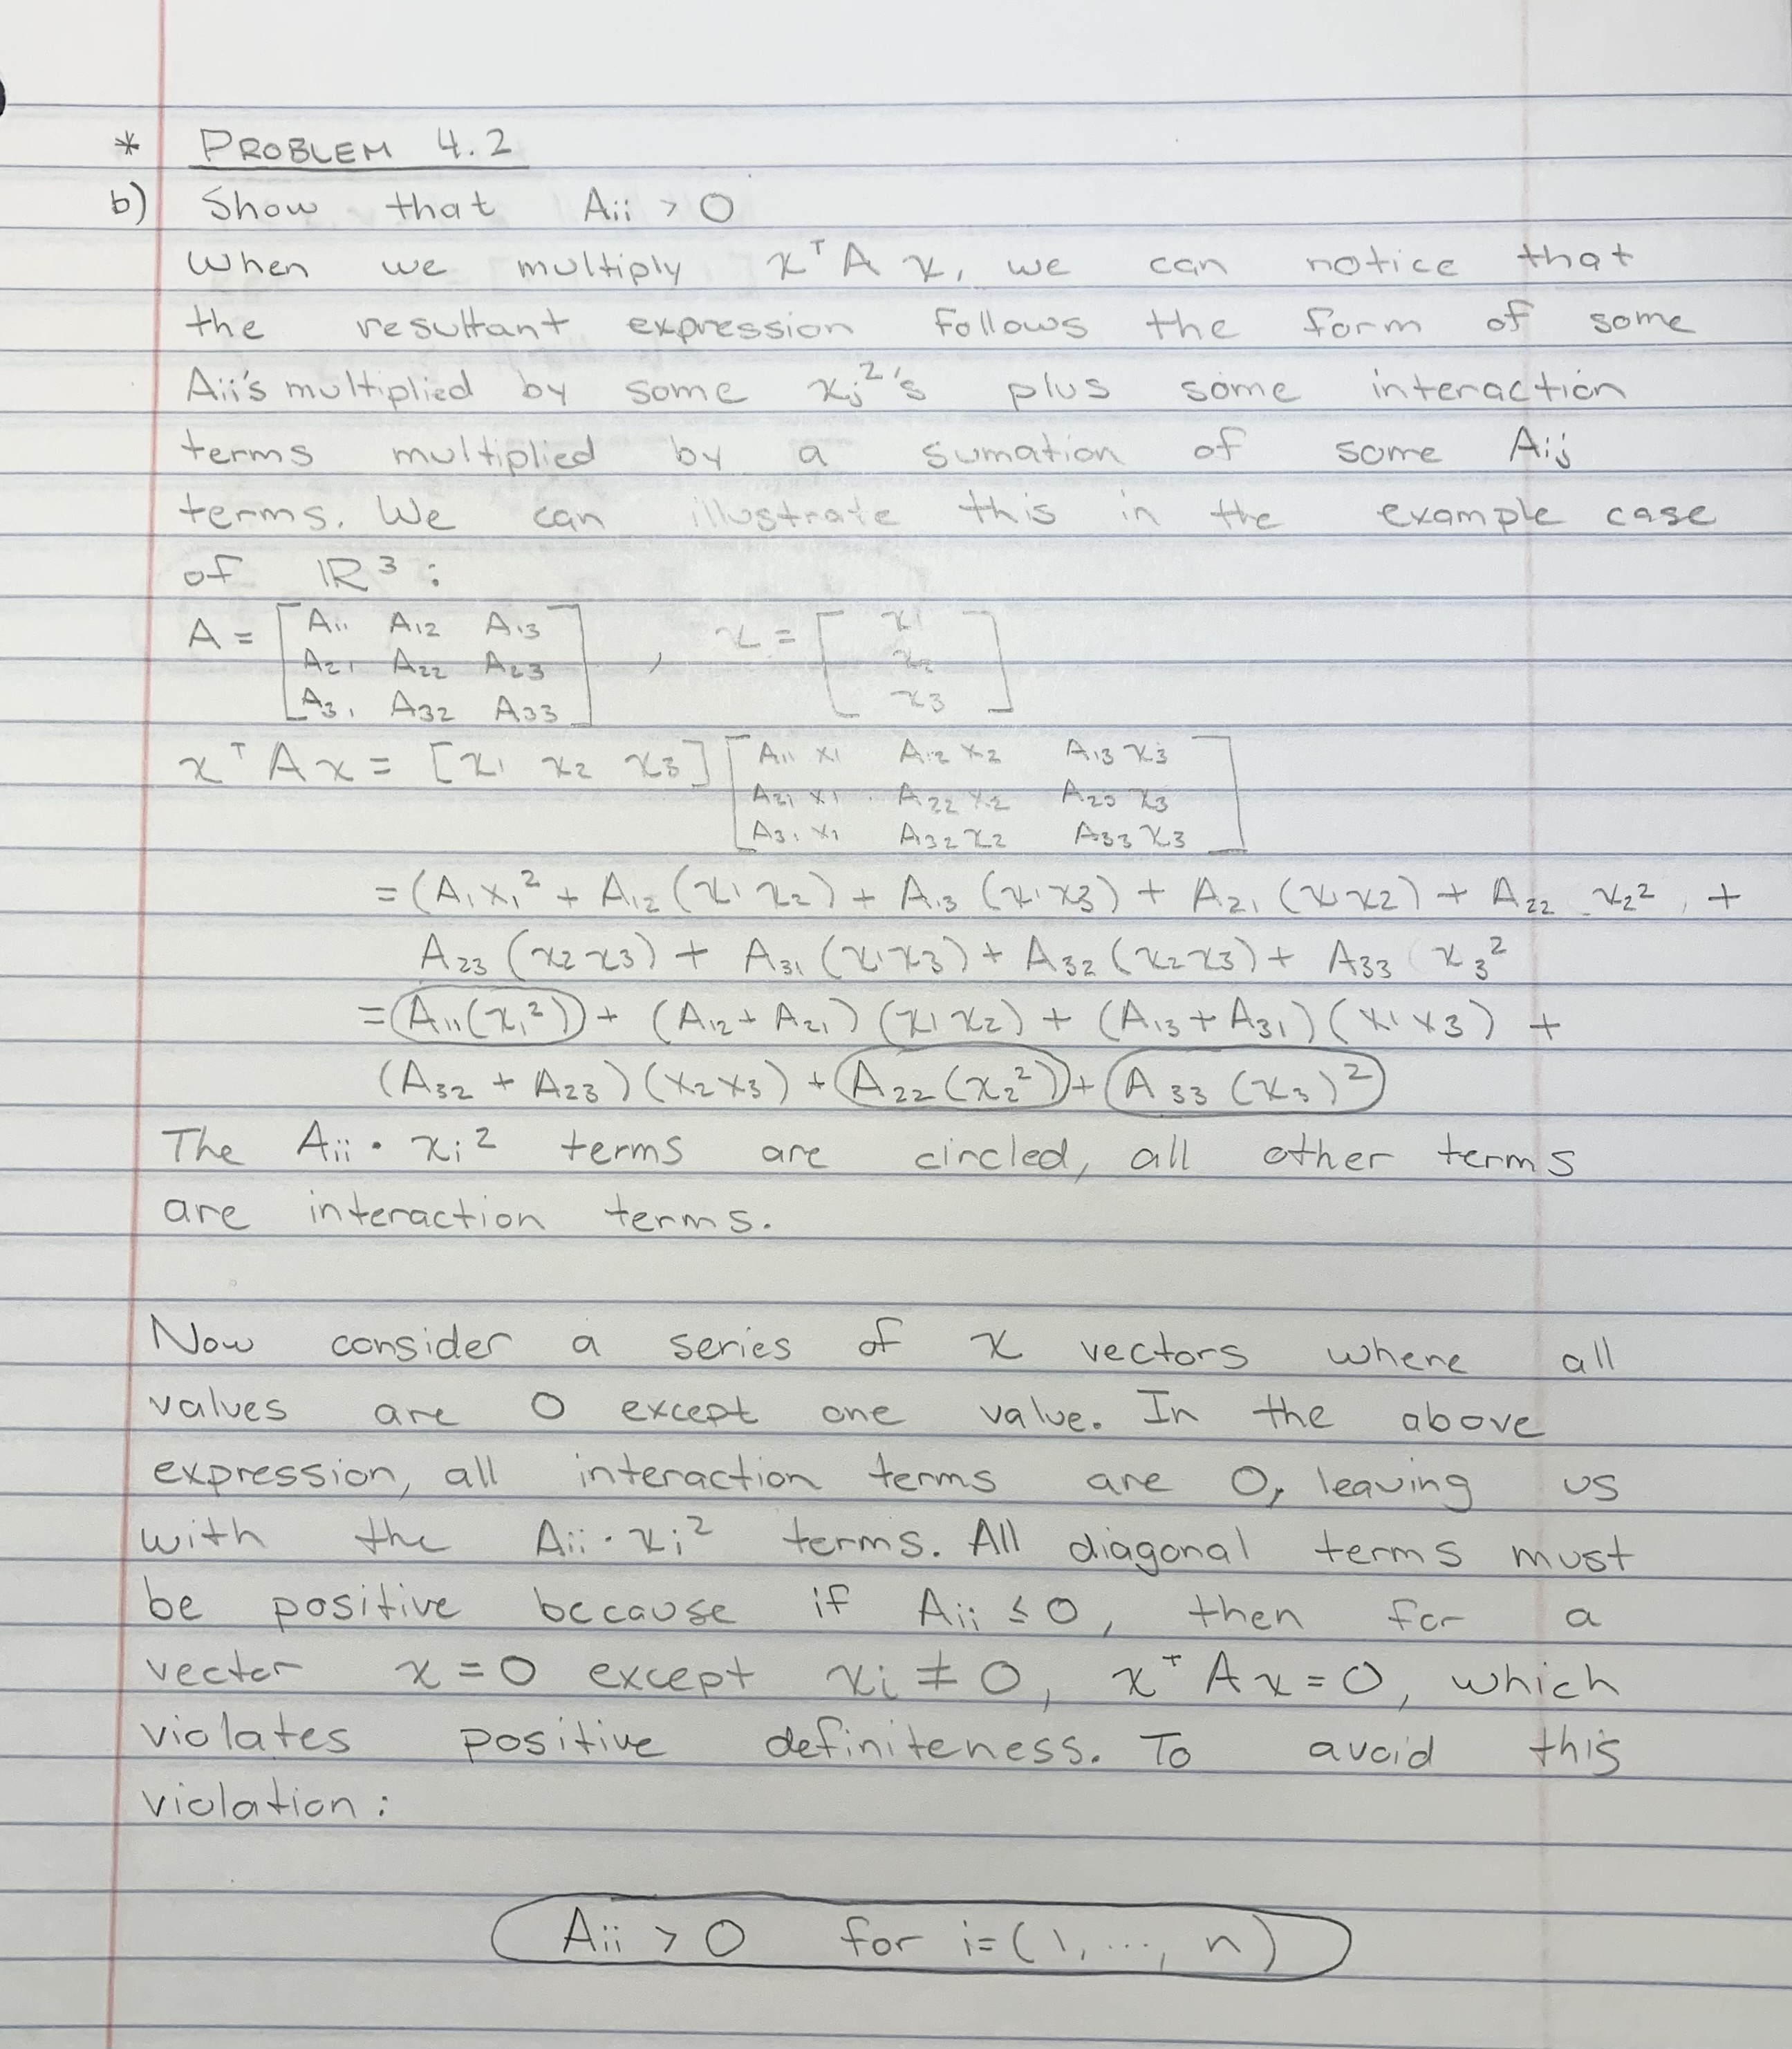 * PROBLEM 4.2
b) Show that Aii > 0
When we multiply xᵀA x, we can notice that
the resultant expression follows the form of some
Aii's multiplied by some xj²'s plus some interaction
terms multiplied by a sumation of some Aij
terms. We can illustrate this in the example case
of ℝ³:
A = [A11 A12 A13
A21 A22 A23
A31 A32 A33] , x = [x1
x2
x3]
xᵀAx = [x1 x2 x3] [A11 x1 A12 x2 A13 x3
A21 x1 A22 x2 A23 x3
A31 x1 A32 x2 A33 x3]
= (A1 x1² + A12 (x1 x2) + A13 (x1 x3) + A21 (x1 x2) + A22 x2² +
A23 (x2 x3) + A31 (x1 x3) + A32 (x2 x3) + A33 x3²
= A11(x1²) + (A12 + A21) (x1 x2) + (A13 + A31) (x1 x3) +
(A32 + A23) (x2 x3) + A22 (x2²) + A33 (x3)²
The Aii · xi² terms are circled, all other terms
are interaction terms.
Now consider a series of x vectors where all
values are 0 except one value. In the above
expression, all interaction terms are 0, leaving us
with the Aii · xi² terms. All diagonal terms must
be positive because if Aii ≤ 0, then for a
vector x = 0 except xi ≠ 0, xᵀAx = 0, which
violates positive definiteness. To avoid this
violation:
Aii > 0 for i = (1, ..., n)